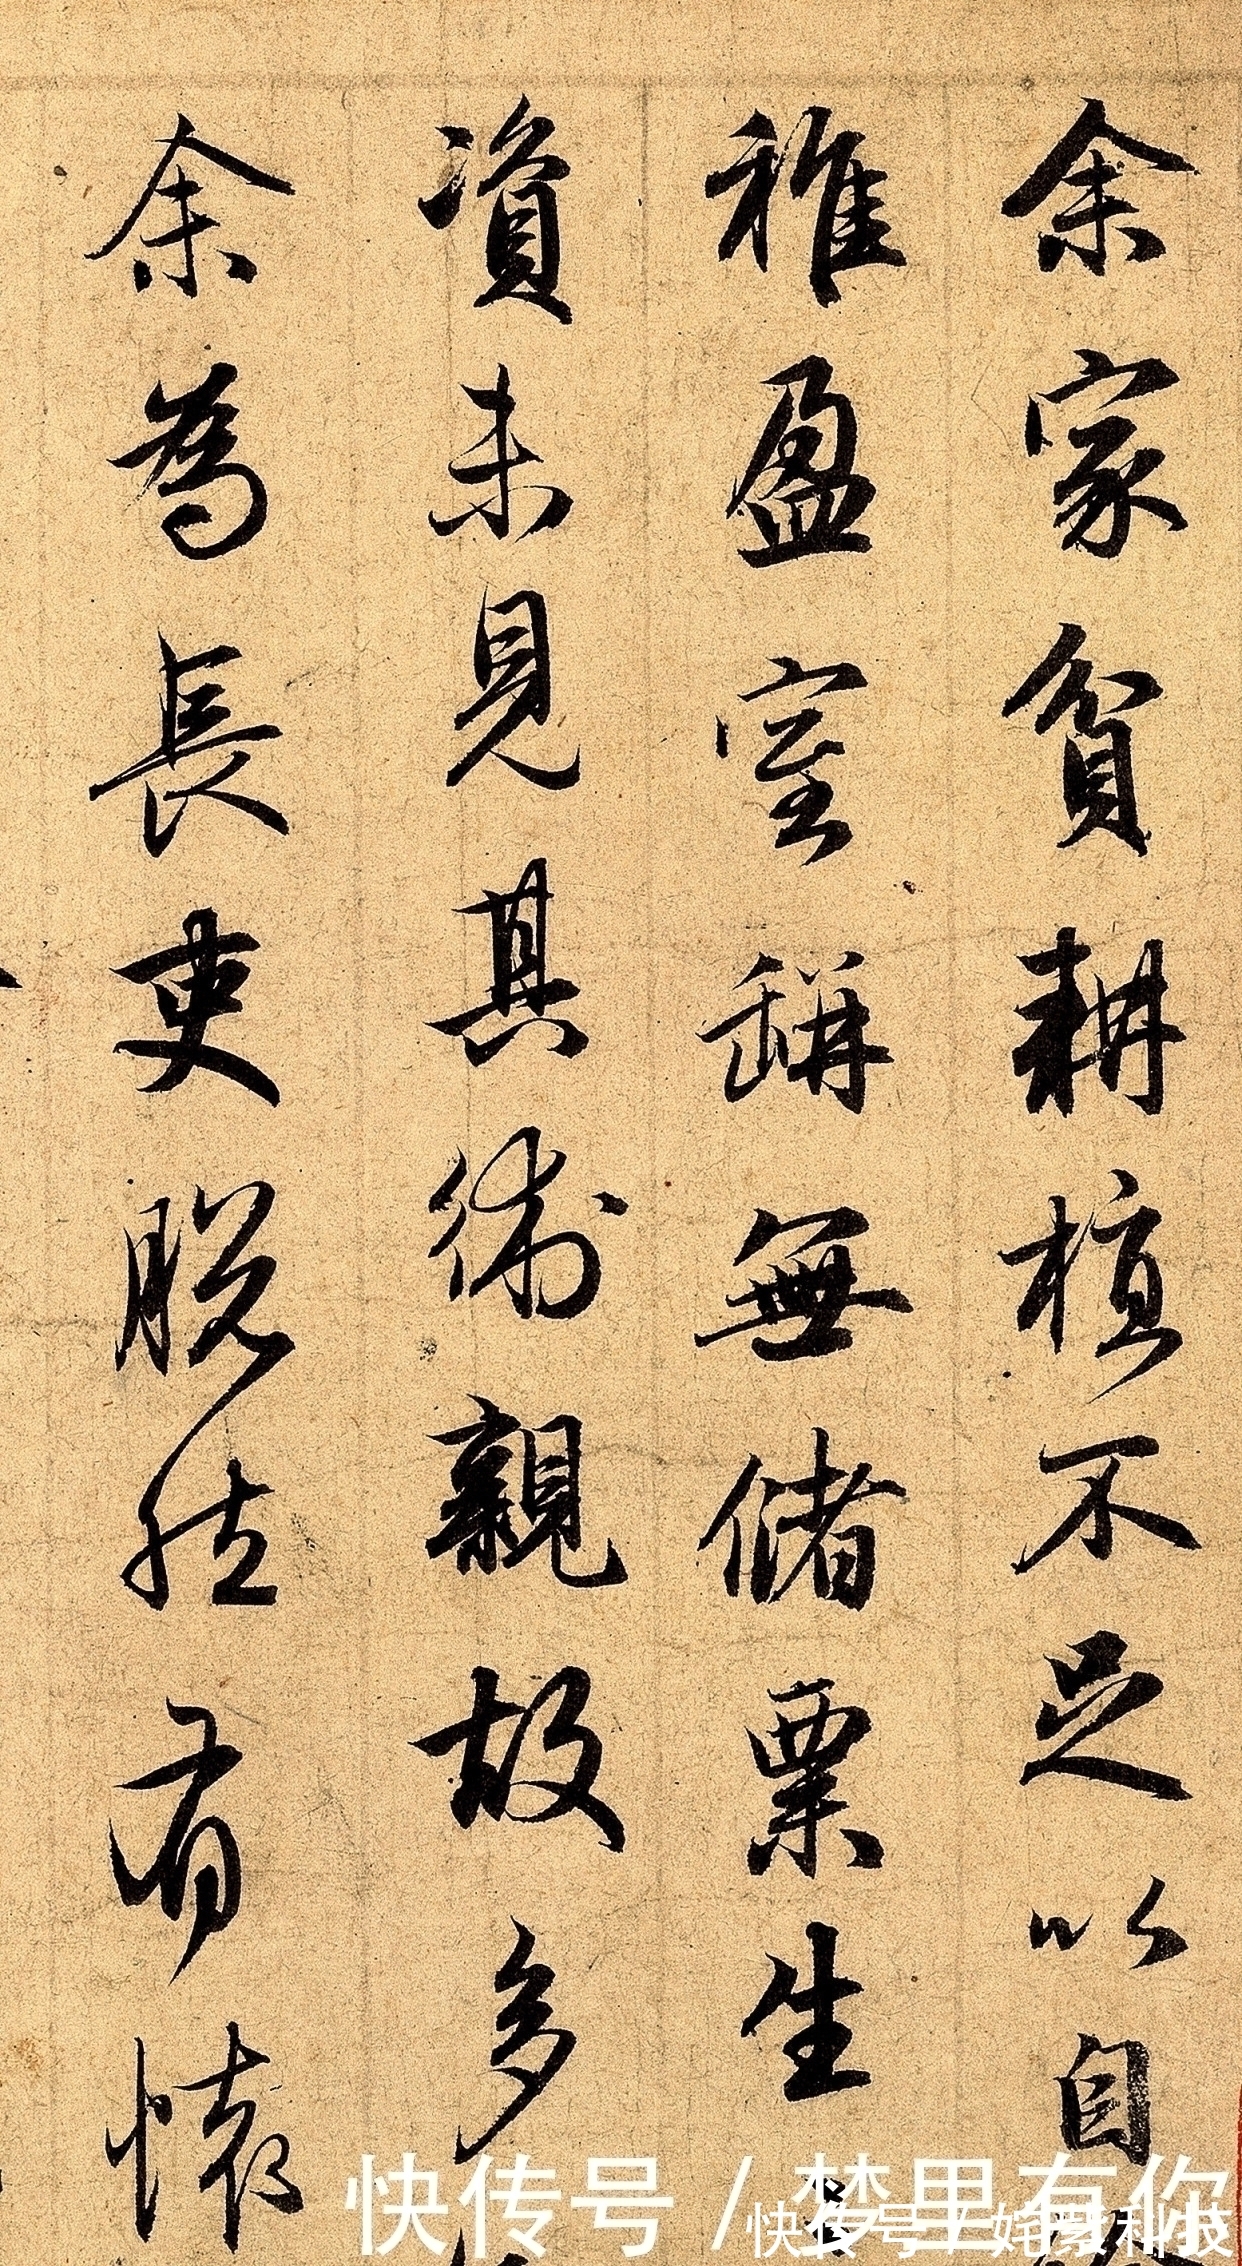 余家貧耕植不足以自
稚盈室缾無儲粟生
資未見其術親故多
余為長吏脫然有懷
快传号 / 梦里有你
快传号 /